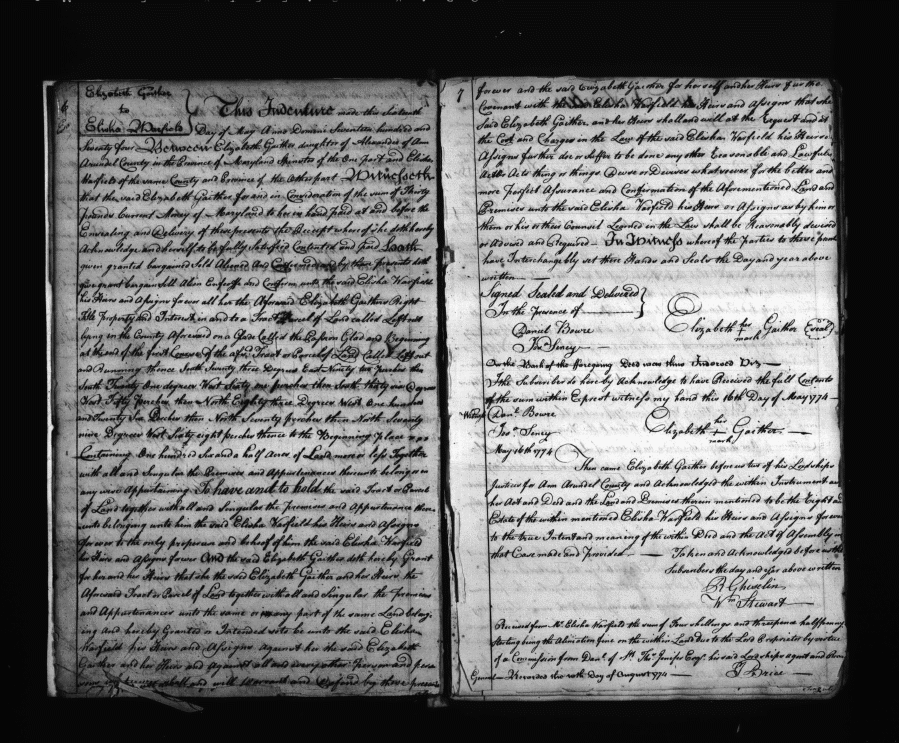 Elizabeth Gaither
to
Elisha Warfield
This Indenture made this sixteenth
Day of May Anno Domini Seventeen hundred and
Seventy four Between Elizabeth Gaither daughter of Alexander of Ann
Arundel County in the Province of Maryland Spinster of the One part and Elisha
Warfield of the same County and Province of the other part Witnesseth
that the said Elizabeth Gaither for and in Consideration of the sum of Thirty
pounds Current Money of Maryland to her in hand paid at and before the
Ensealing and Delivery of these presents the Receipt whereof she doth hereby
Acknowledge and herself to be fully satisfied Contented and paid hath
given granted bargained Sold Aliened And Enfeoffed and by these presents doth
give grant bargain Sell Alien Enfeoffe and Confirm unto the said Elisha Warfield
his Heirs and Assigns forever all her the Aforesaid Elizabeth Gaithers Right
Title Property and Interest in and to a Tract or Parcel of Land called Left out
lying in the County Aforesaid on a Glade Called the Glad and Beginning
at the end of the first Course of the afsd. Tract or Parcel of Land Called Left out
and Running thence South Seventy three Degrees East Ninety perches then
South Twenty One degrees West Sixty one perches then South thirty six Degrees
West Fifty perches then North Eighty three Degrees West One hundred
and Twenty Six Perches then North Seventy perches then North Seventy
nine Degrees West Sixty eight perches thence to the Beginning place
Containing One hundred Six and a half Acres of Land more or less Together
with all and Singular the Premises and Appurtenances thereunto belonging or
any wise Appertaining To have and to hold the said Tract or Parcel
of Land together with all and Singular the premises and Appurtenances there
unto belonging unto him the said Elisha Warfield his Heirs and Assigns
forever to the only proper use and behoof of him the said Elisha Warfield
his Heirs and Assigns forever And the said Elizabeth Gaither doth hereby Grant
for her and her Heirs that she the said Elizabeth Gaither and her Heirs the
Aforesaid Tract or Parcel of Land together with all and Singular the premises
and Appurtenances unto the same or any part of the same Land belong
ing and hereby Granted or Intended so to be unto the said Elisha
Warfield his Heirs and Assigns Against her the said Elizabeth
Gaither and her Heirs and Against all and every other Person and persons
shall and will Warrant and Defend by these presents
7
forever and the said Elizabeth Gaither for herself and her Heirs further
Covenant with the said Elisha Warfield his Heirs and Assigns that she
Said Elizabeth Gaither and her Heirs shall and will at the Request and at
the Cost and Charges in the Law of the said Elisha Warfield his Heirs or
Assigns farther do or suffer to be done any other Reasonable and Lawful
Act or Acts thing or things Devise or Devises whatsoever for the better and
more perfect Assurance and Confirmation of the Aforementioned Land and
Premises unto the said Elisha Warfield his Heirs or Assigns as by him or
them or his or their Council Learned in the Law shall be Reasonably devised
or Advised and Required In Witness whereof the parties to these presents
have Interchangeably set there Hands and Seals the Day and year above
written
Signed Sealed and Delivered
In the presence of
Elizabeth her + mark Gaither (Seal)
Daniel Bowre
Jos. Sency
On the Back of the foregoing Deed was thus Indorsed Viz
I the Subscriber do hereby Acknowledge to have Received the full Contents
of the sum within Exprest witness my hand this 16th Day of May 1774
Witness Danl. Bowre
Jos. Sency
Elizabeth his + mark Gaither
May 16th 1774
Then came Elizabeth Gaither before us two of his Lordships
Justices for Ann Arundel County and Acknowledged the within Instrument as
her Act and Deed and the Land and Premises therein mentioned to be the Right and
Estate of the within mentioned Elisha Warfield his Heirs and Assigns forever
to the true Intent and meaning of the within Deed and the Act of Assembly in
that Case made and Provided Taken and Acknowledged before us the
Subscribers the day and year above written
R Ghiselin
Wm. Stewart
Received from Mr. Elisha Warfield the sum of Four shillings and threepence halfpenny
Sterling being the Alienation fine on the within Land due to the Lord Proprietor by virtue
of a Commission from Danl. of St. Thos. Jenifer Esqr. his said Lordships agent and Receiver
General Recorded the 10th Day of August 1774
T Brice